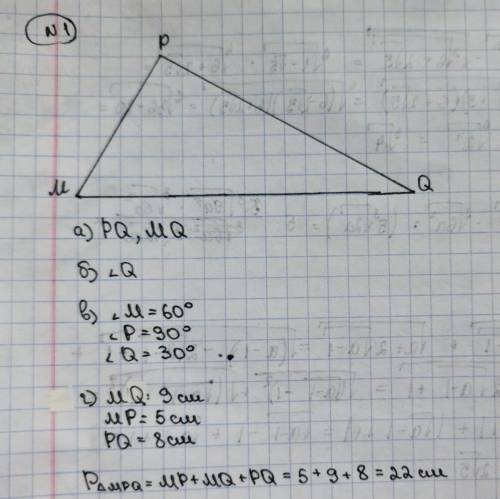 N1
P
M
Q
а) PQ, MQ
б) ∠Q
в) ∠M = 60°
∠P = 90°
∠Q = 30°
г) MQ = 9 см
MP = 5 см
PQ = 8 см
P△MPQ = MP + MQ + PQ = 5 + 9 + 8 = 22 см